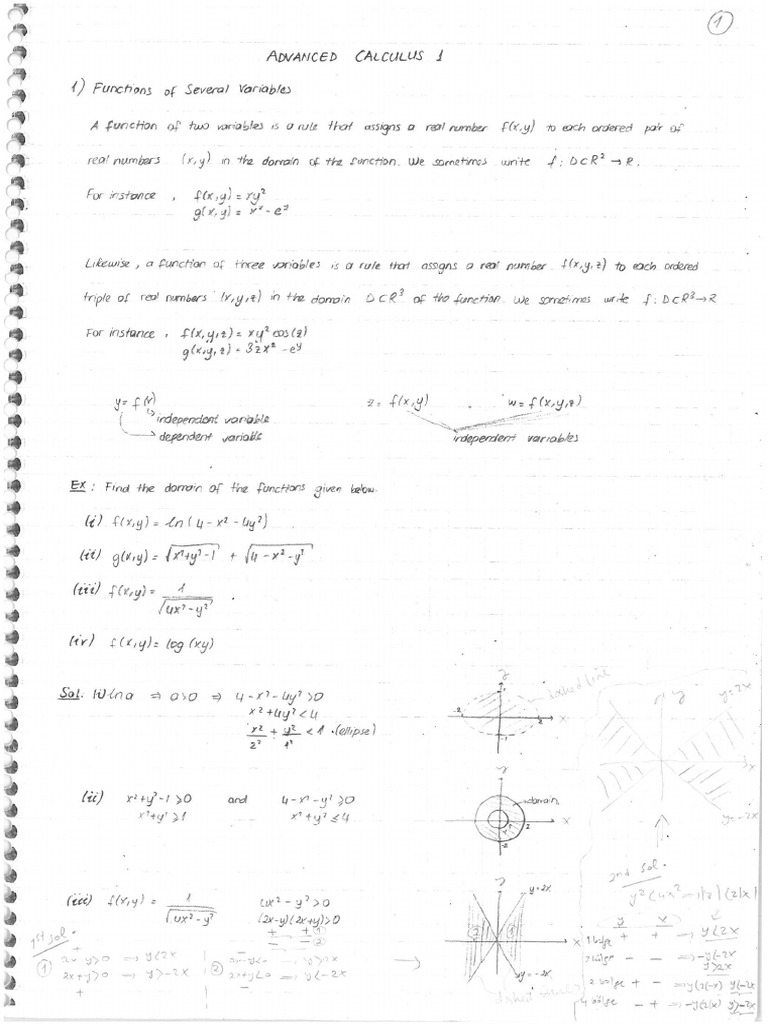 1
ADVANCED CALCULUS 1
1) Functions of Several Variables
A function of two variables is a rule that assigns a real number f(x,y) to each ordered pair of
real numbers (x,y) in the domain of the function. We sometimes write f: D⊂R² → R.
For instance, f(x,y) = xy²
g(x,y) = x² - eʸ
Likewise, a function of three variables is a rule that assigns a real number f(x,y,z) to each ordered
triple of real numbers (x,y,z) in the domain D⊂R³ of the function. We sometimes write f: D⊂R³→R
For instance, f(x,y,z) = xy² cos(z)
g(x,y,z) = 3zx² - eʸ
y = f(x) z = f(x,y) w = f(x,y,z)
independent variable
dependent variable independent variables
Ex: Find the domain of the functions given below.
(i) f(x,y) = ln(4-x²-4y²)
(ii) g(x,y) = √(x²+y²-1) + √(4-x²-y²)
(iii) f(x,y) = 1/√(4x²-y²)
(iv) f(x,y) = log(xy)
Sol. (i) ln a ⇒ a>0 ⇒ 4-x²-4y²>0
x²+4y²<4
x²/2² + y²/1² < 1 (ellipse)
y
dashed line
-2 2 x
-1
y y=2x
x
y=-2x
(ii) x²+y²-1≥0 and 4-x²-y²≥0
x²+y²≥1 x²+y²≤4
y
domain
1 2 x
-2
2nd sol.
(iii) f(x,y) = 1/√(4x²-y²) 4x²-y²>0
(2x-y)(2x+y)>0
+ + ①
- - ②
y
y=2x
② ① x
y=-2x
1st sol.
① 2x-y>0 ⇒ y<2x
2x+y>0 ⇒ y>-2x
② 2x-y<0 ⇒ y>2x
2x+y<0 ⇒ y<-2x
y x
1 bölge + + ⇒ y<2x
- - ⇒ -y<-2x
y>2x
2 bölge + - ⇒ y<2(-x) y<-2x
4 bölge - + ⇒ -y<2(x) y>-2x